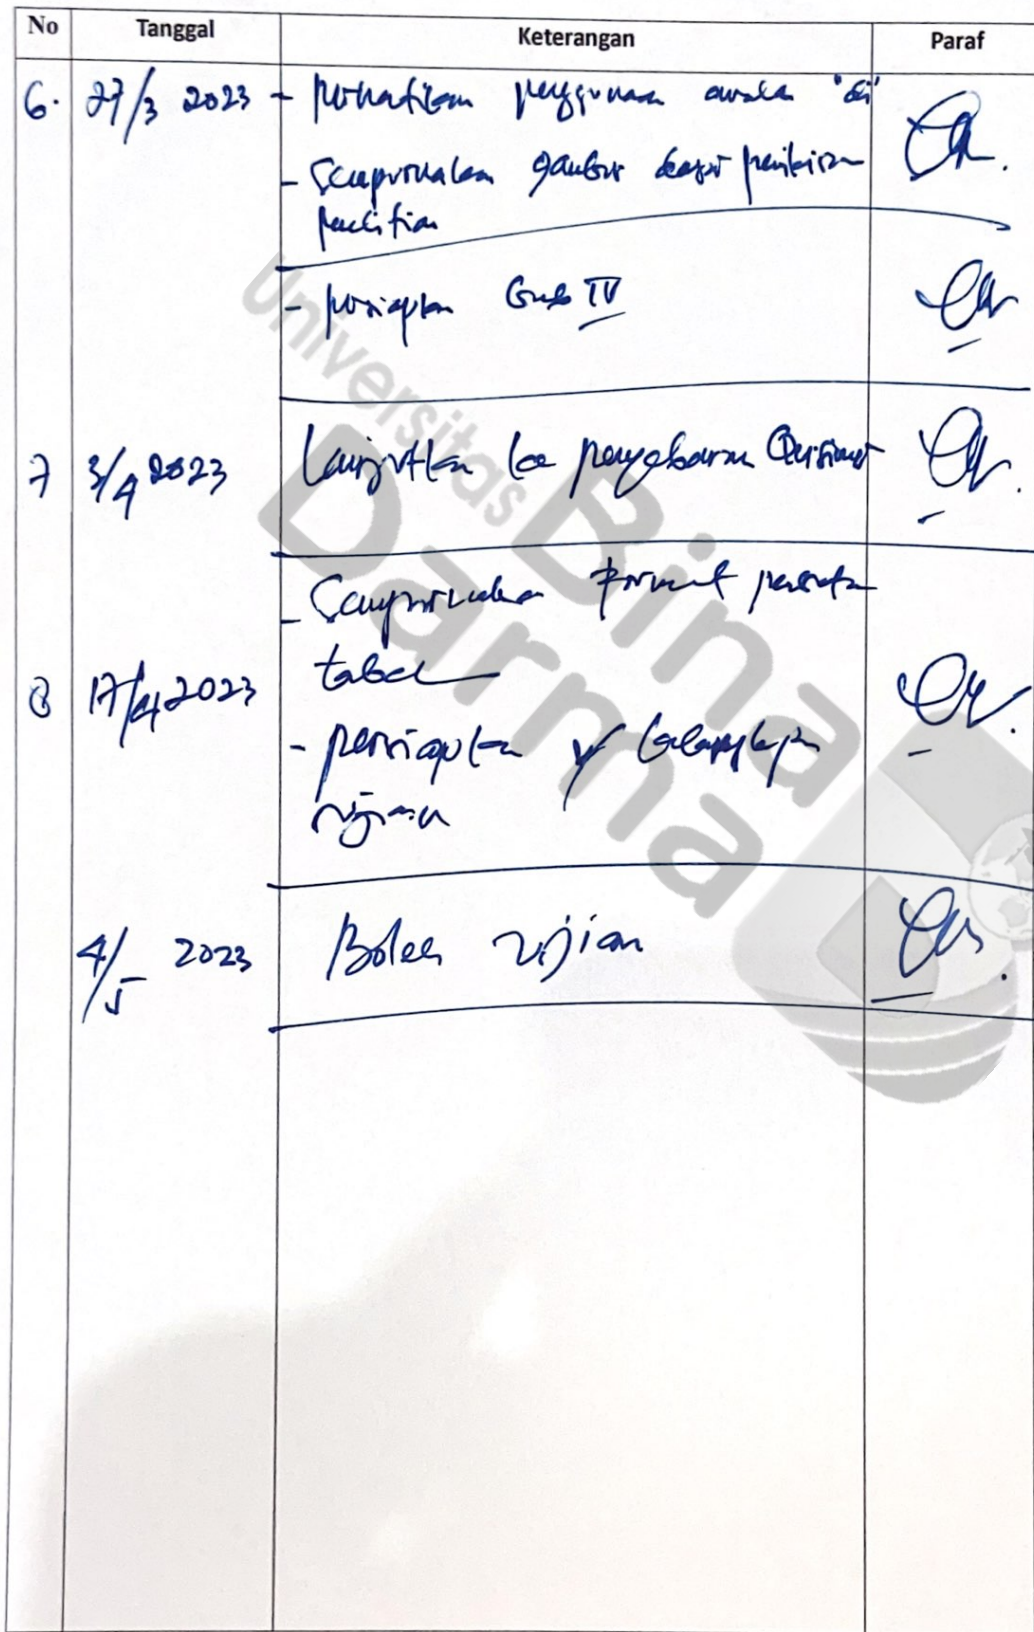 No Tanggal Keterangan Paraf
6. 27/3 2023 - perhatikan penggunaan awalan "di"
- Sempurnakan gambar kerangka pemikiran
penelitian
- persiapkan Bab IV
7 3/4 2023 Lanjutkan ke penyebaran Quisioner
- Sempurnakan format penulisan
tabel
8 17/4 2023
- persiapkan kelengkapan
ujian
4/5 2023 Boleh ujian
Universitas
Bina
Darma